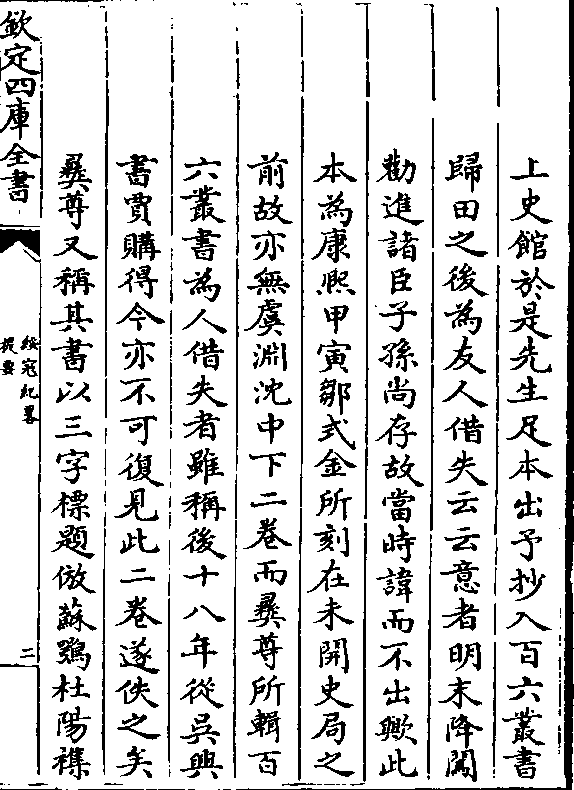 上史館於是先生足本出予抄入百六叢書
歸田之後為友人借失云云意者明末降闖
勸進諸臣子孫尚存故當時諱而不出歟此
本為康熙甲寅鄒式金所刻在未開史局之
前故亦無虞淵沈中下二卷而彛尊所輯百
六叢書為人借失者雖稱後十八年從吳興
書賈購得今亦不可復見此二卷遂佚之矣
彛尊又稱其書以三字標題倣蘇鶚杜陽襍
欽定四庫全書
綏寇紀畧
提要
二